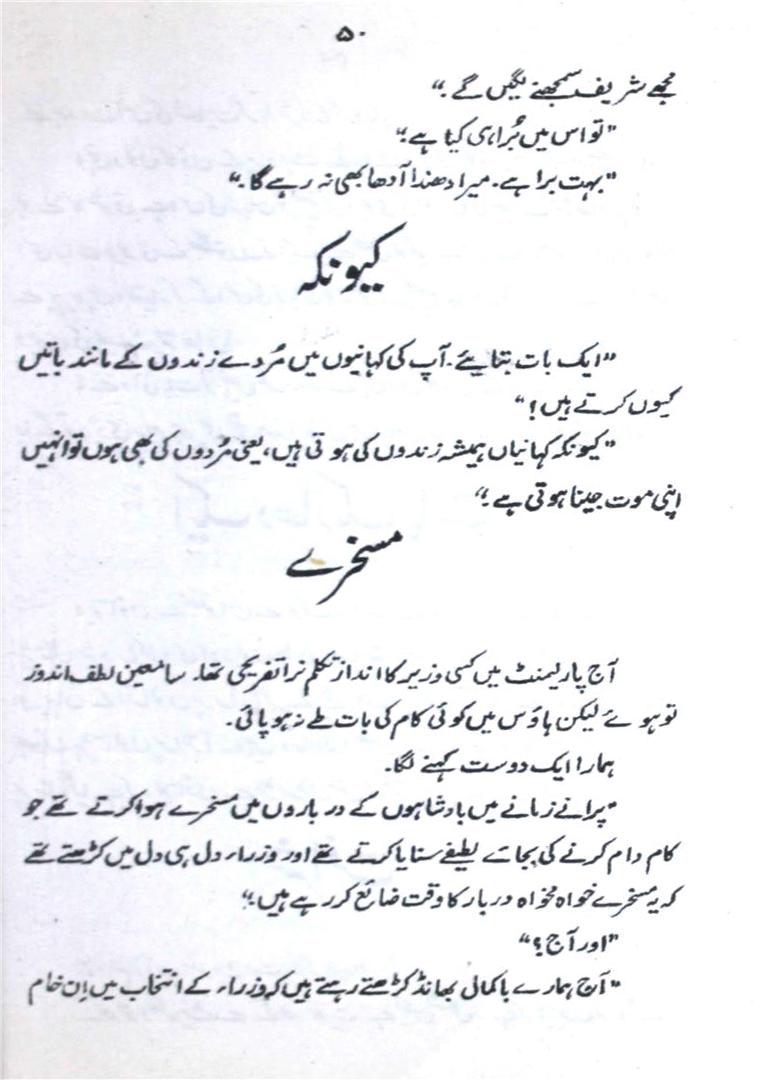 ۵۰
مجھے شریف سمجھنے لگیں گے۔“
”تو اس میں بُرا ہی کیا ہے؟“
”بہت برا ہے۔ میرا دھندا آدھا بھی نہ رہے گا۔“
کیونکہ
”ایک بات بتائیے۔ آپ کی کہانیوں میں مُردے زندوں کے مانند باتیں
کیوں کرتے ہیں؟“
”کیونکہ کہانیاں ہمیشہ زندوں کی ہوتی ہیں، یعنی مُردوں کی بھی ہوں تو انہیں
اپنی موت جینا ہوتی ہے۔“
مسخرے
آج پارلیمنٹ میں کسی وزیر کا اندازِ تکلم نرا تفریحی تھا۔ سامعین لطف اندوز
تو ہوئے لیکن ہاؤس میں کوئی کام کی بات طے نہ ہو پائی۔
ہمارا ایک دوست کہنے لگا۔
”پرانے زمانے میں بادشاہوں کے درباروں میں مسخرے ہوا کرتے تھے جو
کام دام کرنے کی بجائے لطیفے سنایا کرتے تھے اور وزراء دل ہی دل میں کڑھتے تھے
کہ یہ مسخرے خواہ مخواہ دربار کا وقت ضائع کر رہے ہیں۔“
”اور آج؟“
”آج ہمارے باکمال بھانڈ کڑھتے رہتے ہیں کہ وزراء کے انتخاب میں اِن خام